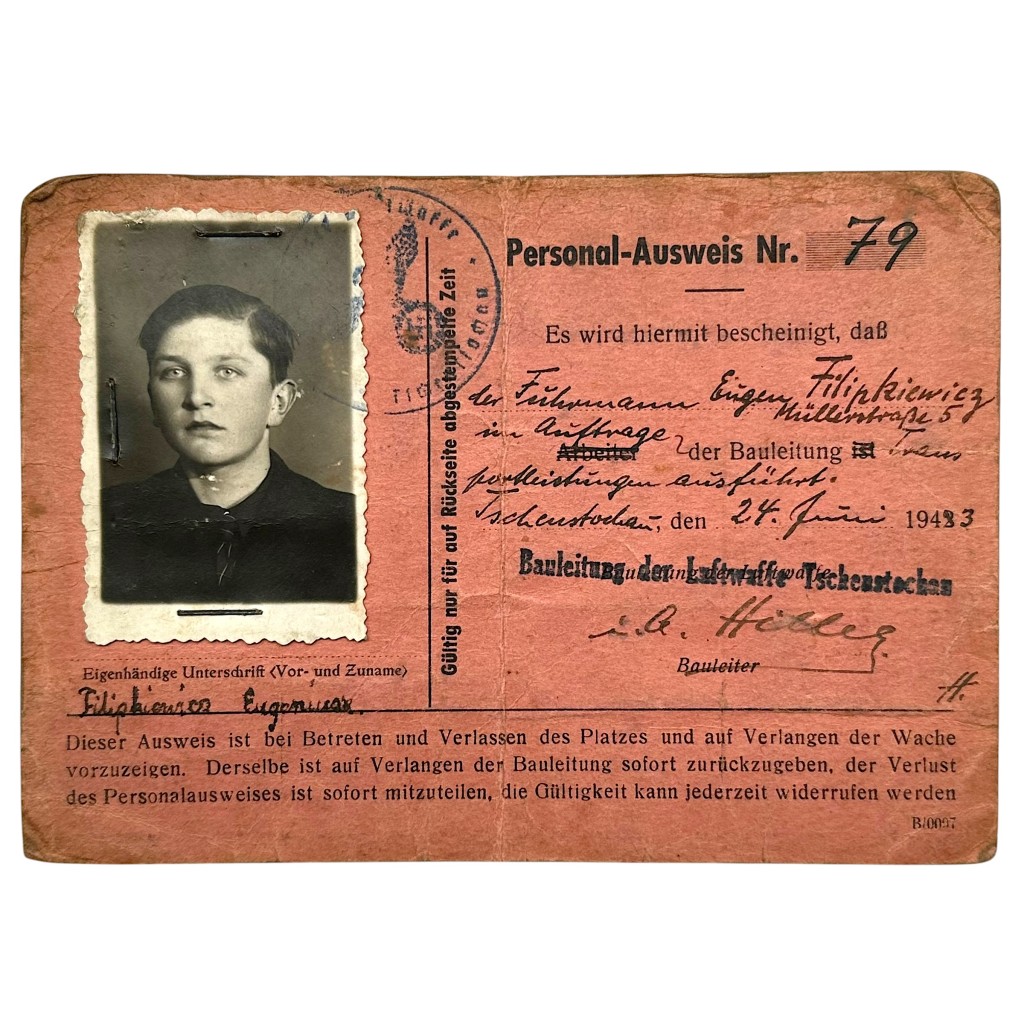 Luftwaffe
Tschenstochau
Gültig nur für auf Rückseite abgestempelte Zeit
Personal-Ausweis Nr. 79
Es wird hiermit bescheinigt, daß
der Fuhrmann Eugen Filipkiewicz
Müllerstraße 5
im Auftrage
Arbeiter der Bauleitung ist Trans
portleistungen ausführt.
Tschenstochau, den 24. Juni 1943
Bauleitung der Luftwaffe Tschenstochau
i. A.
Bauleiter
H.
Eigenhändige Unterschrift (Vor- und Zuname)
Filipkiewicz Eugeniusz.
Dieser Ausweis ist bei Betreten und Verlassen des Platzes und auf Verlangen der Wache
vorzuzeigen. Derselbe ist auf Verlangen der Bauleitung sofort zurückzugeben, der Verlust
des Personalausweises ist sofort mitzuteilen, die Gültigkeit kann jederzeit widerrufen werden
B/0097